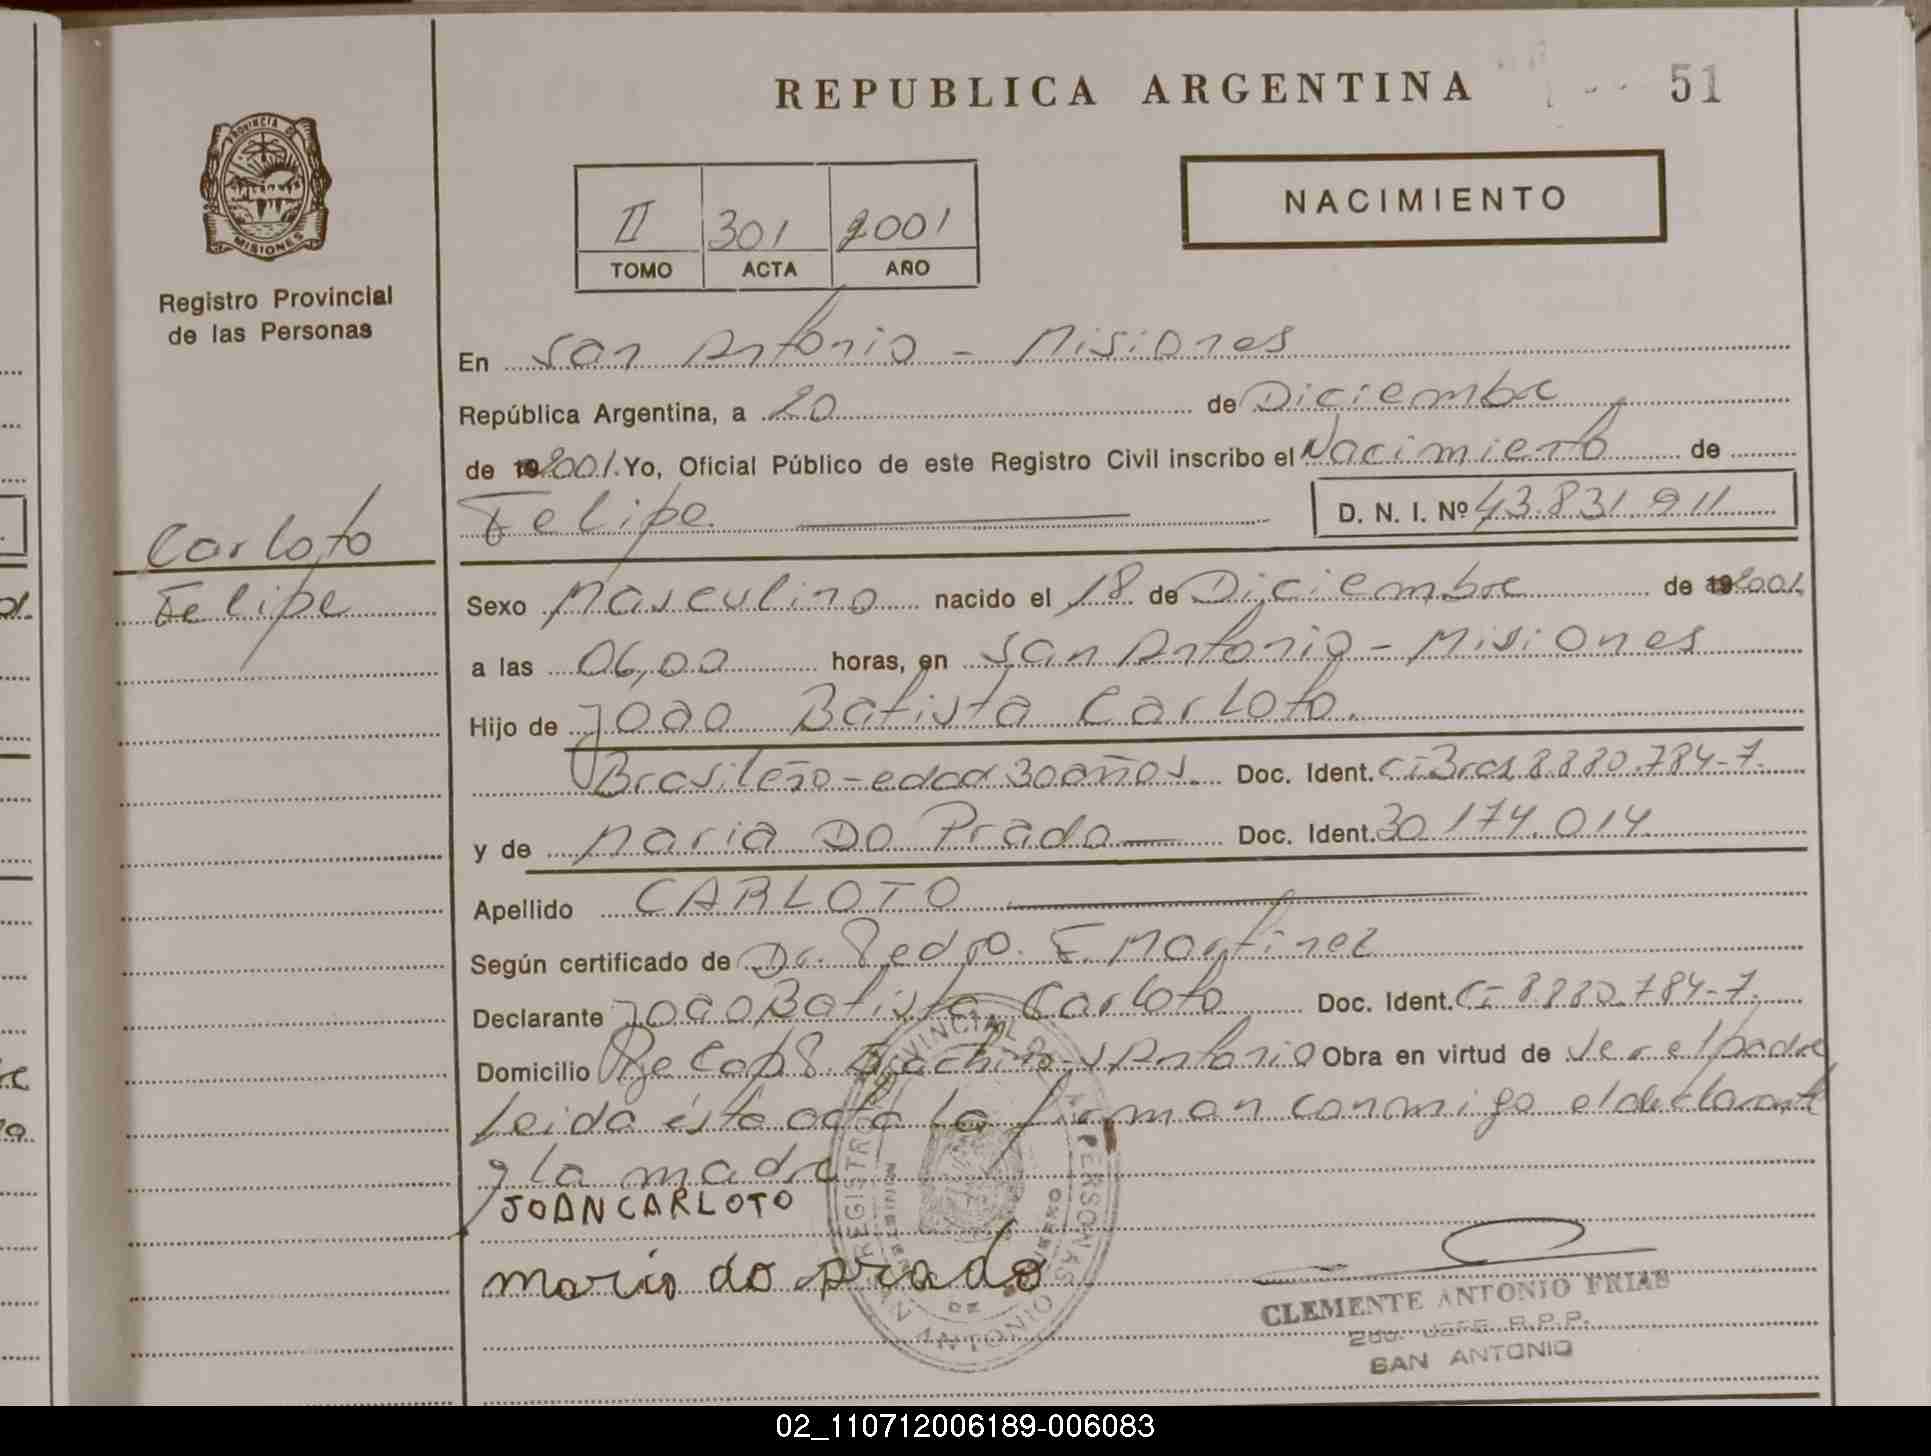 REPUBLICA ARGENTINA
51
PROVINCIA DE
MISIONES
Registro Provincial
de las Personas
II 301 2001
TOMO ACTA AÑO
NACIMIENTO
En San Antonio - Misiones
República Argentina, a 20 de Diciembre
de 192001. Yo, Oficial Público de este Registro Civil inscribo el Nacimiento de
Felipe D. N. I. Nº 43.831.911
Carloto
Felipe
Sexo Masculino nacido el 18 de Diciembre de 192001.
a las 06,00 horas, en San Antonio - Misiones
Hijo de Joao Batista Carloto.
Brasileño - edad 30 años. Doc. Ident. Ci Bras 8.880.784-7.
y de Maria Do Prado Doc. Ident. 30.174.014
Apellido CARLOTO
Según certificado de Dr. Pedro. F. Martinez
Declarante Joao Batista Carloto Doc. Ident. Ci 8880.784-7.
Domicilio Antonio Obra en virtud de ser el padre
leida ésta acta la firman conmigo el declarante
y la madre
JOANCARLOTO
maria do prado
REGISTRO PROVINCIAL DE LAS PERSONAS
SAN ANTONIO
CLEMENTE ANTONIO FRIAS
2do. JEFE R.P.P.
SAN ANTONIO
02_110712006189-006083